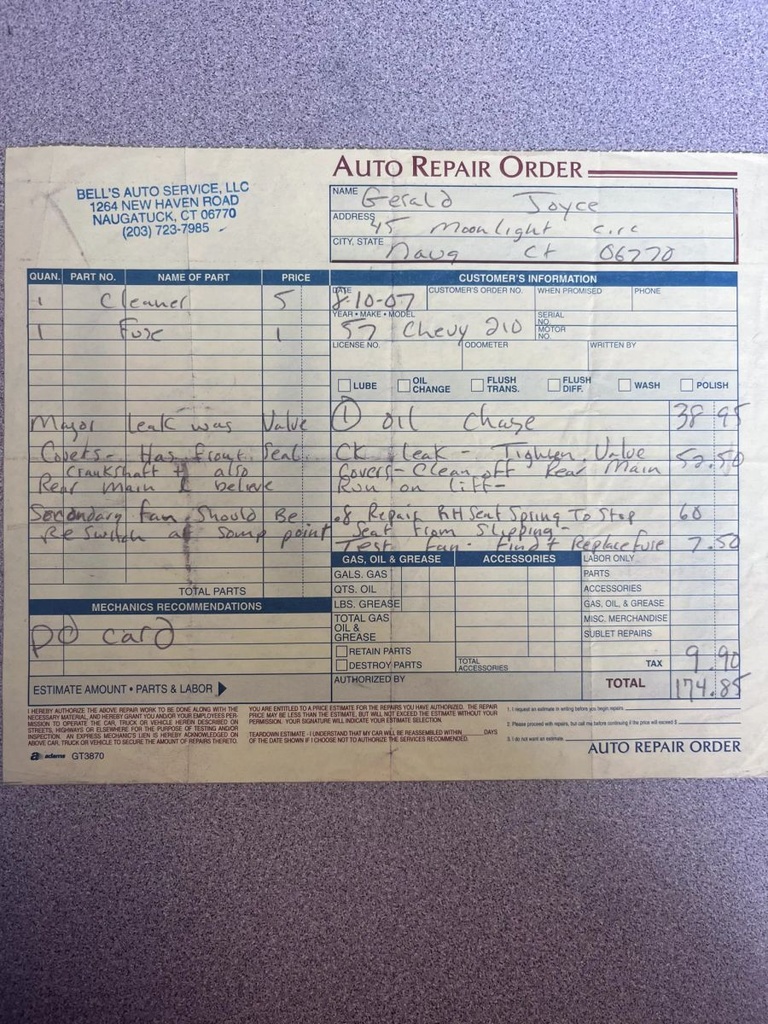 AUTO REPAIR ORDER
BELL'S AUTO SERVICE, LLC
1264 NEW HAVEN ROAD
NAUGATUCK, CT 06770
(203) 723-7985
NAME Gerald Joyce
ADDRESS 45 Moonlight Circ
CITY, STATE Naug Ct 06770
QUAN. PART NO. NAME OF PART PRICE
1 Cleaner 5
1 Fuse 1
CUSTOMER'S INFORMATION
DATE 8-10-07 CUSTOMER'S ORDER NO. WHEN PROMISED PHONE
YEAR • MAKE • MODEL 57 Chevy 210 SERIAL NO. MOTOR NO.
LICENSE NO. ODOMETER WRITTEN BY
LUBE OIL CHANGE FLUSH TRANS. FLUSH DIFF. WASH POLISH
Major leak was Valve
Covers- Has front Seal
Crankshaft + also
Rear main I believe
Secondary fan Should Be
Re Switch at Some point
① Oil Chage 38 95
CK leak - Tighten Valve 52.50
Covers - Clean off Rear Main
Run on lift-
.8 Repair RH Seat Spring To Stop 60
Seat From Slipping-
Test fan - Find + Replace fuse 7.50
TOTAL PARTS
MECHANICS RECOMMENDATIONS
pd card
ESTIMATE AMOUNT • PARTS & LABOR
GAS, OIL & GREASE ACCESSORIES LABOR ONLY
GALS. GAS PARTS
QTS. OIL ACCESSORIES
LBS. GREASE GAS, OIL, & GREASE
TOTAL GAS OIL & GREASE MISC. MERCHANDISE
SUBLET REPAIRS
RETAIN PARTS
DESTROY PARTS TOTAL ACCESSORIES TAX 9.90
AUTHORIZED BY TOTAL 174.85
I HEREBY AUTHORIZE THE ABOVE REPAIR WORK TO BE DONE ALONG WITH THE
NECESSARY MATERIAL, AND HEREBY GRANT YOU AND/OR YOUR EMPLOYEES PER-
MISSION TO OPERATE THE CAR, TRUCK OR VEHICLE HEREIN DESCRIBED ON
STREETS, HIGHWAYS OR ELSEWHERE FOR THE PURPOSE OF TESTING AND/OR
INSPECTION. AN EXPRESS MECHANICS LIEN IS HEREBY ACKNOWLEDGED ON
ABOVE CAR, TRUCK OR VEHICLE TO SECURE THE AMOUNT OF REPAIRS THERETO.
YOU ARE ENTITLED TO A PRICE ESTIMATE FOR THE REPAIRS YOU HAVE AUTHORIZED. THE REPAIR
PRICE MAY BE LESS THAN THE ESTIMATE, BUT WILL NOT EXCEED THE ESTIMATE WITHOUT YOUR
PERMISSION. YOUR SIGNATURE WILL INDICATE YOUR ESTIMATE SELECTION.
TEARDOWN ESTIMATE - I UNDERSTAND THAT MY CAR WILL BE REASSEMBLED WITHIN DAYS
OF THE DATE SHOWN IF I CHOOSE NOT TO AUTHORIZE THE SERVICES RECOMMENDED.
1. I request an estimate in writing before you begin repairs.
2. Please proceed with repairs, but call me before continuing if the price will exceed $
3. I do not want an estimate.
AUTO REPAIR ORDER
adams GT3870